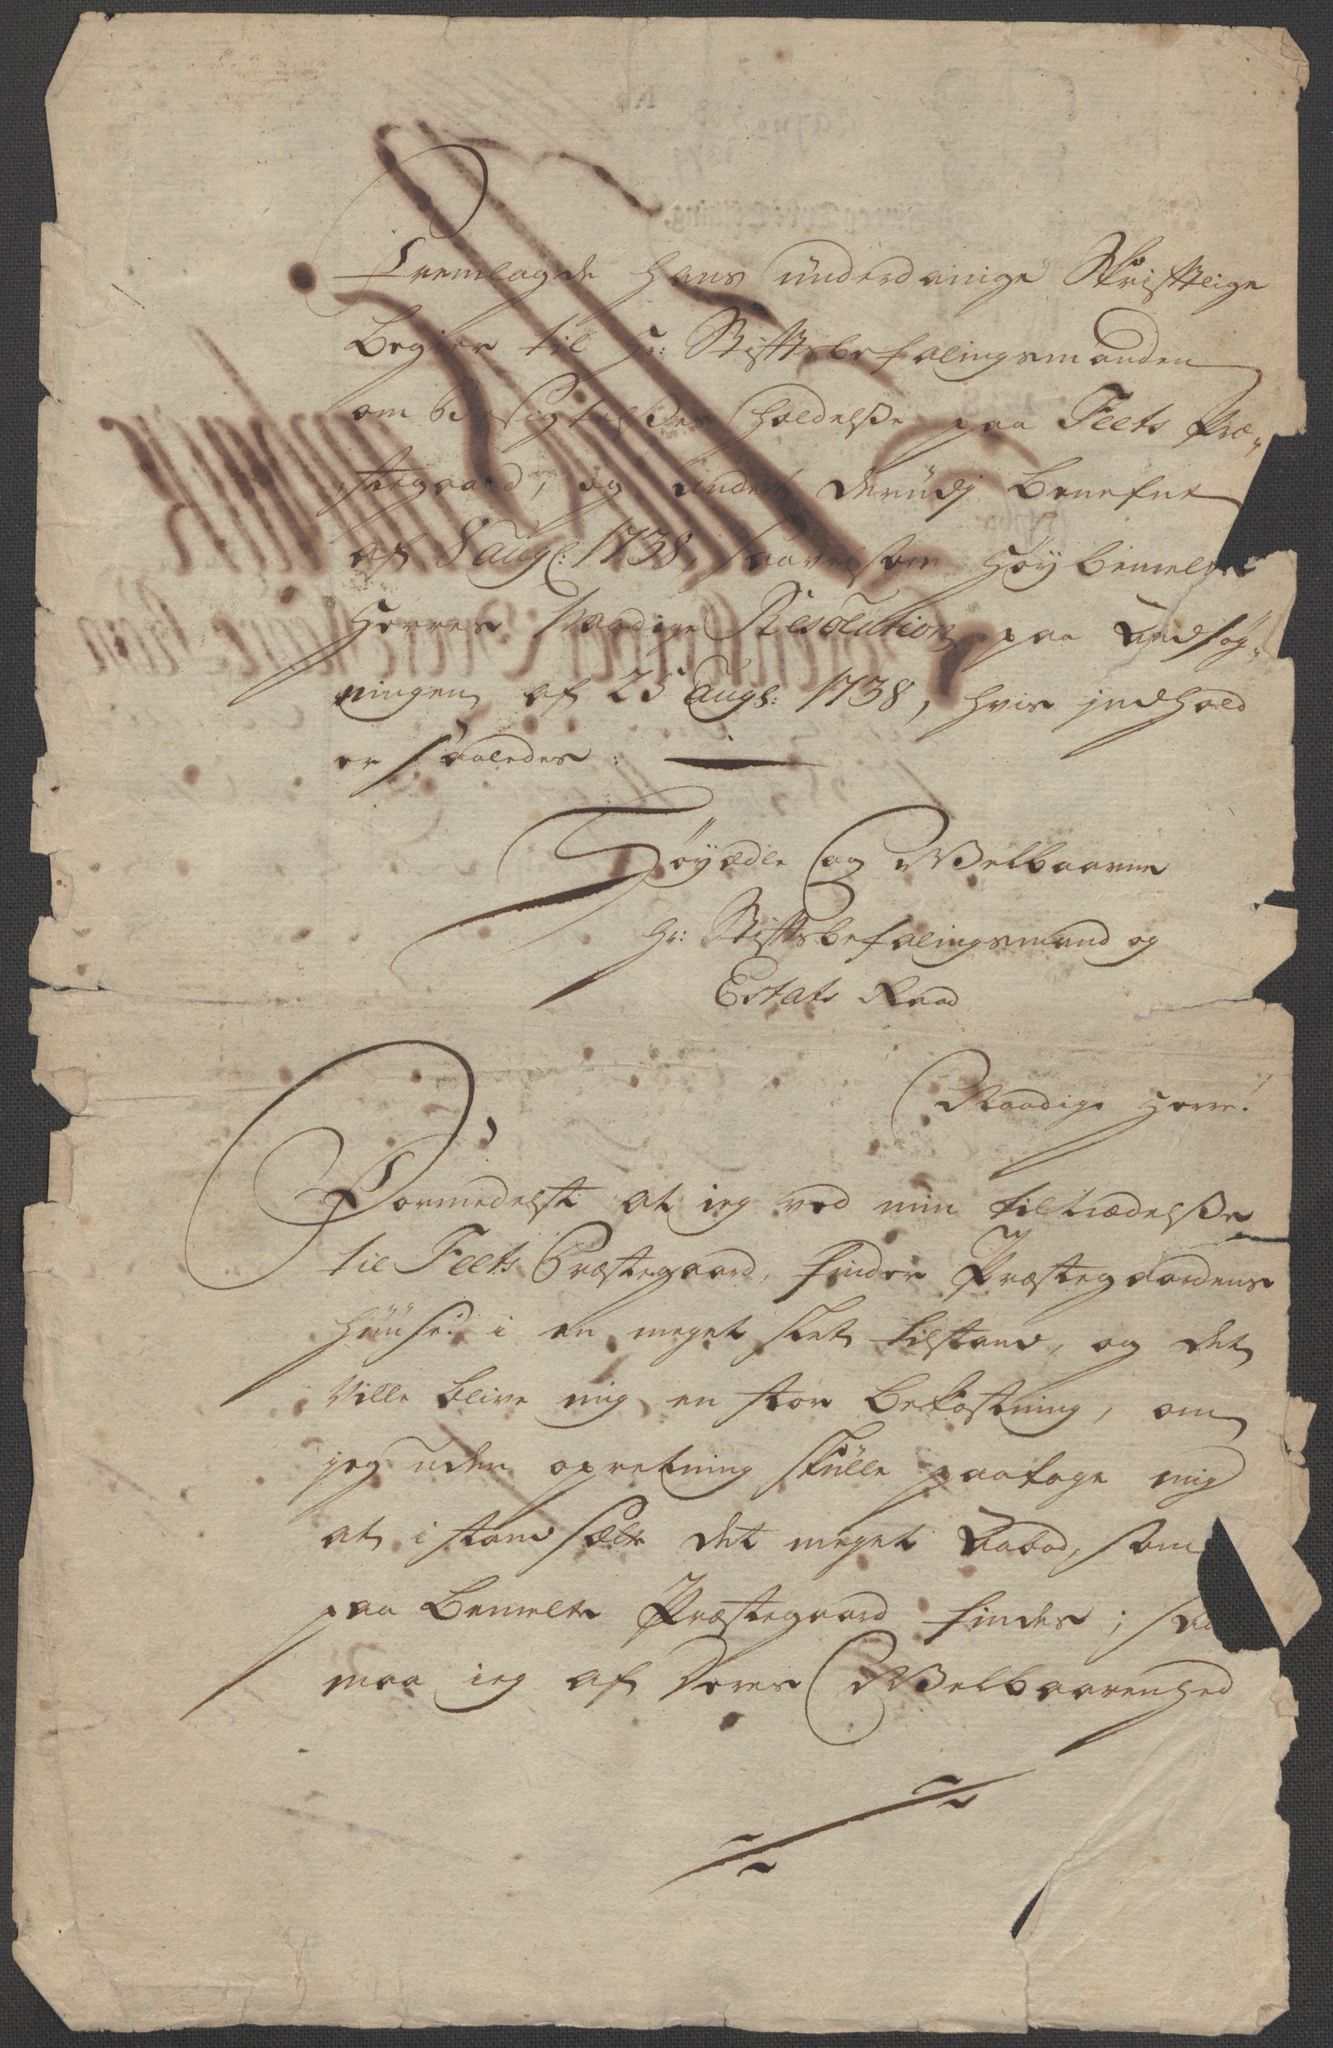 Fremlagde hans underdanige Skrifttlige
Begier til Hr: Stifttsbefalingsmanden
om Besigtelses holdelsße paa Feets Præ-
stegaard, og andet derudj benefnt
af 8 aug: 1738, saavelsom Høybemelte
Herres Naadige Resolution paa Ansøg-
ningen af 25 Augs: 1738, hvis jndhold
er saaledes:
Høyædle og Welbaarne
Hr: Stifttsbefalingsmand og
Estats Raad
Naadige Herre!
Formedelst at jeg ved min tiltrædelsße
til Feets Præstegaard, finder Præstegaardens
Huuse i en meget slet tilstand, og det
ville blive mig en stor Bekostning, om
jeg uden opretning skulle paatage mig
at i stand sætte det meget Aabod, som
paa Bemelte Præstegaard findes; saa
maa jeg af Deres Welbaarenhed